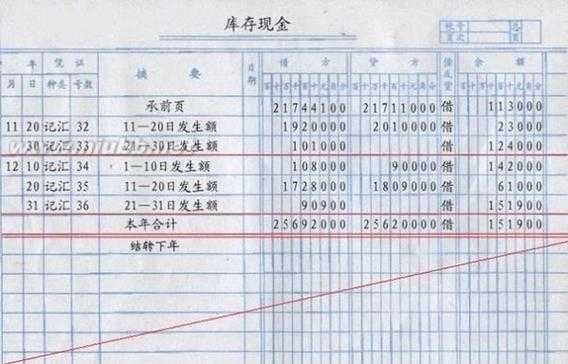 库存现金
年 凭证 摘要 日期 借方 贷方 借或贷 余额
月 日 种类 号数
承前页 21744100 21711000 借 113000
11 20 记汇 32 11—20日发生额 1920000 2010000 借 23000
30 记汇 33 21—30日发生额 101000 124000
12 10 记汇 34 1—10日发生额 108000 90000 借 142000
20 记汇 35 11—20日发生额 1728000 1809000 借 61000
31 记汇 36 21—31日发生额 90900 借 151900
本年合计 25692000 25620000 借 151900
结转下年